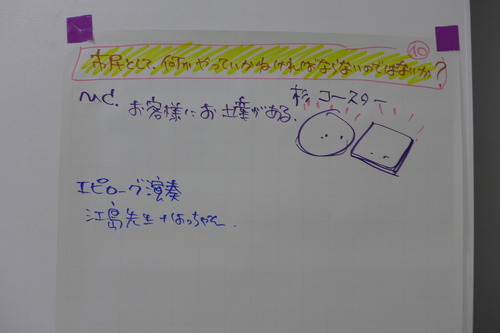 10
市民として、何かやっていかなければならないのではないか?
MC.
お客様にお土産がある。
杉 コースター
エピローグ演奏
江島先生+はっちゃん.